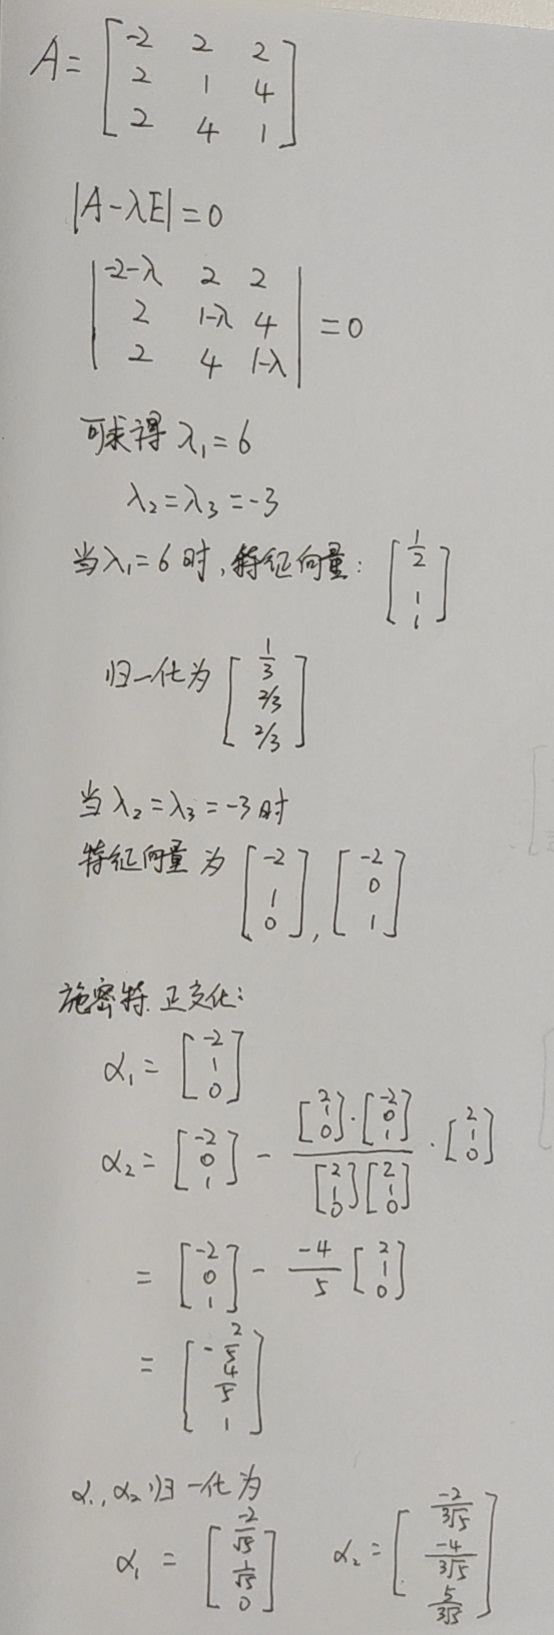 A = [ -2 2 2
2 1 4
2 4 1 ]
|A-λE| = 0
| -2-λ 2 2
2 1-λ 4
2 4 1-λ | = 0
可求得 λ₁ = 6
λ₂ = λ₃ = -3
当 λ₁ = 6 时, 特征向量: [ 1/2 1 1 ]
归一化为 [ 1/3 2/3 2/3 ]
当 λ₂ = λ₃ = -3 时
特征向量为 [ -2 1 0 ], [ -2 0 1 ]
施密特正交化:
α₁ = [ -2 1 0 ]
α₂ = [ -2 0 1 ] - ([ 2 1 0 ]·[ -2 0 1 ])/([ 2 1 0 ][ 2 1 0 ]) · [ 2 1 0 ]
= [ -2 0 1 ] - -4/5 [ 2 1 0 ]
= [ -2/5 4/5 1 ]
α₁, α₂ 归一化为
α₁ = [ -2/√5 1/√5 0 ] α₂ = [ -2/3√5 -4/3√5 5/3√5 ]